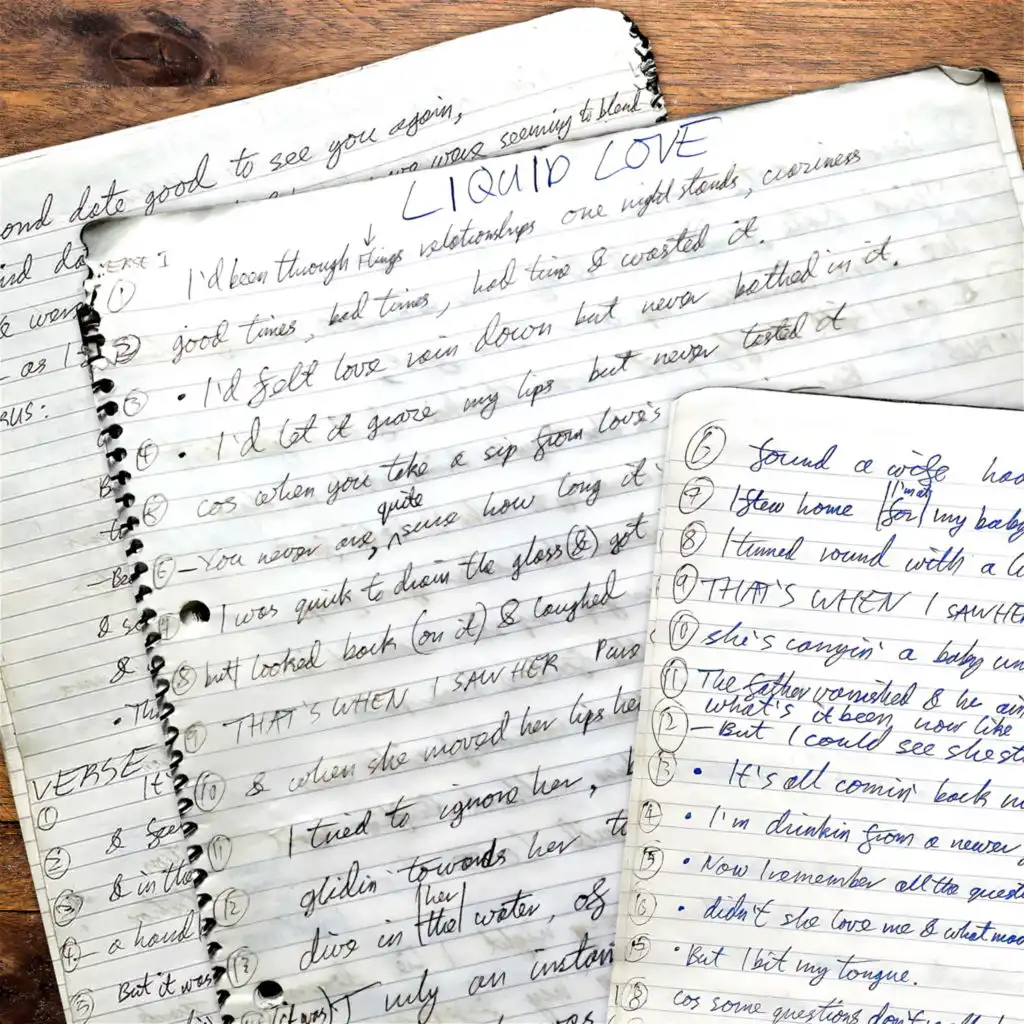 ond date good to see you again,
we were seeming to blend
LIQUID LOVE
VERSE 1
① I'd been through flings relationships one night stands, craziness
② good times, bad times, had time & wasted it.
③ • I'd felt love rain down but never bathed in it.
④ • I'd let it graze my lips but never tasted it
⑤ cos when you take a sip from love's
⑥ - You never are, quite sure how long it
I was quick to drain the glass (&) got
⑧ but I looked back (on it) & laughed
⑨ THAT'S WHEN I SAW HER
⑩ & when she moved her lips her
⑪ I tried to ignore her,
glidin' towards her
⑫ dive in [the] [her] water,
⑬ only an instan
(it was)
RUS:
- as I
& so
&
VERSE
①
② & seen
③ & in the
④ - a hand
⑤ But it was
⑥ found a wife had
⑦ I flew home [for] [I'm at] my baby
⑧ I turned round with a
⑨ THAT'S WHEN I SAW HER
⑩ she's carryin' a baby
⑪ The father vanished & he ain
what's it been, now like
⑫ - But I could see she st
⑬ • It's all comin' back
• I'm drinkin from a newer
• Now I remember all the quest
• didn't she love me & what
• But I bit my tongue.
cos some questions don't